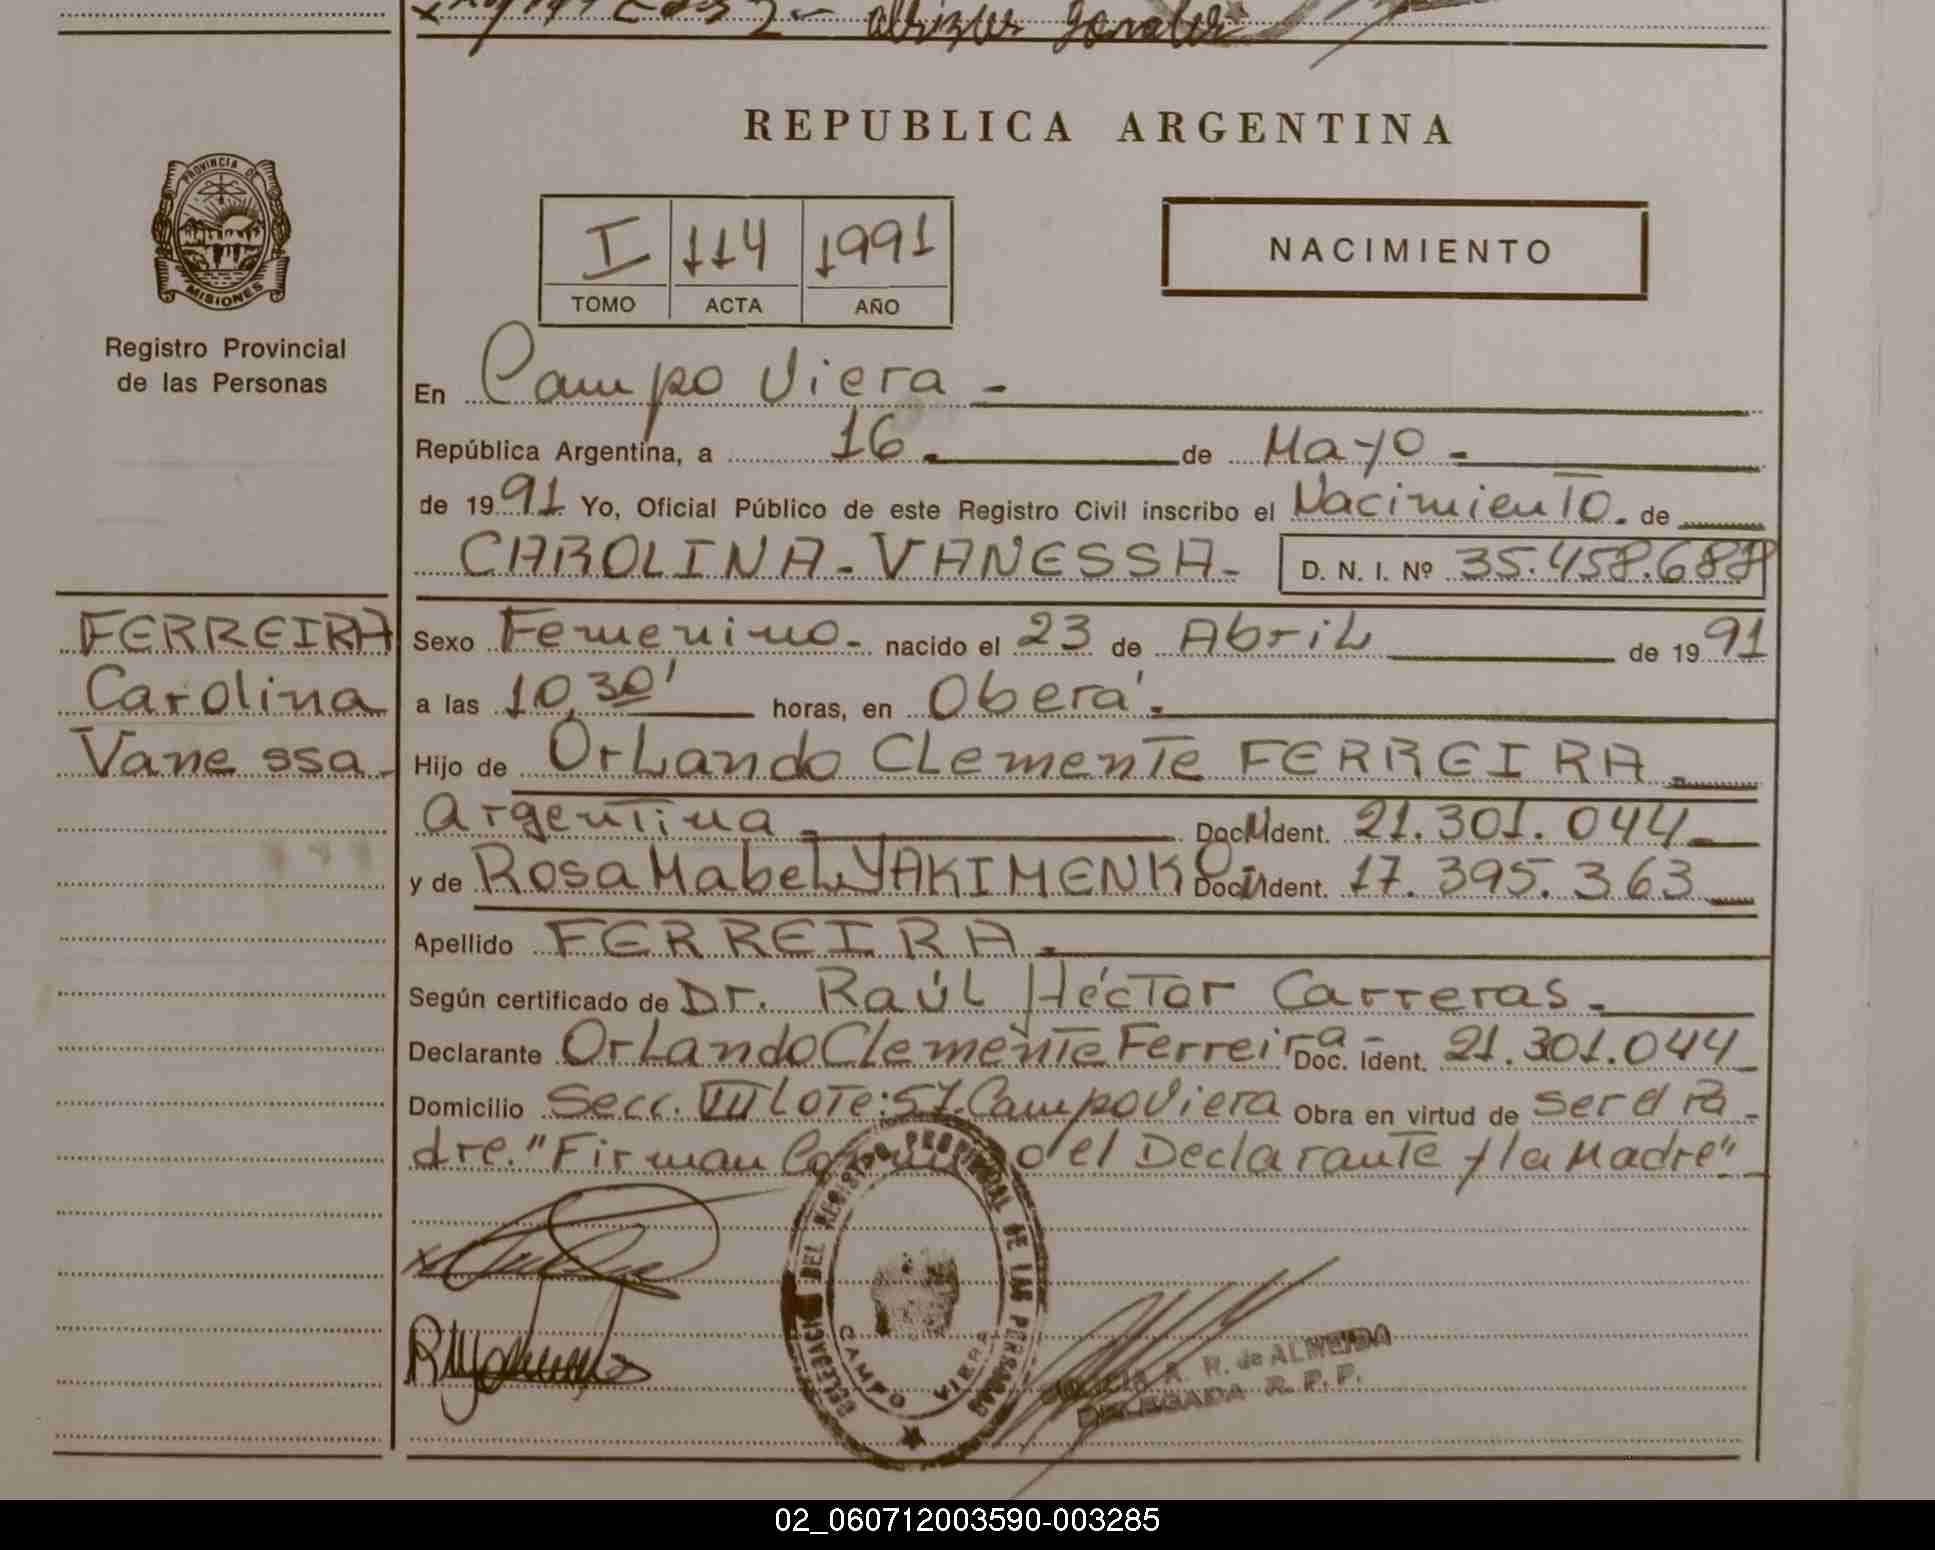 REPUBLICA ARGENTINA
PROVINCIA DE
MISIONES
Registro Provincial
de las Personas
I 114 1991
TOMO ACTA AÑO
NACIMIENTO
En Campo Viera -
República Argentina, a 16. de Mayo -
de 1991 Yo, Oficial Público de este Registro Civil inscribo el Nacimiento. de
CAROLINA - VANESSA - D. N. I. Nº 35.458.688
FERREIRA
Carolina
Vanessa -
Sexo Femenino - nacido el 23 de Abril de 1991
a las 10,30' horas, en Oberá.
Hijo de Orlando Clemente FERREIRA -
Argentina - Doc. Ident. 21.301.044
y de Rosa Mabel YAKIMENKO Doc. Ident. 17.395.363
Apellido FERREIRA.
Según certificado de Dr. Raúl Héctor Carreras -
Declarante Orlando Clemente Ferreira - Doc. Ident. 21.301.044
Domicilio Secc. VII Lote: 57. Campo Viera Obra en virtud de ser el Pa-
dre. "Firman del Declarante y la Madre"
DELEGACION DEL REGISTRO PROVINCIAL DE LAS PERSONAS
CAMPO VIERA
A. R. de ALMEIDA
DELEGADA R. P. P.
02_060712003590-003285